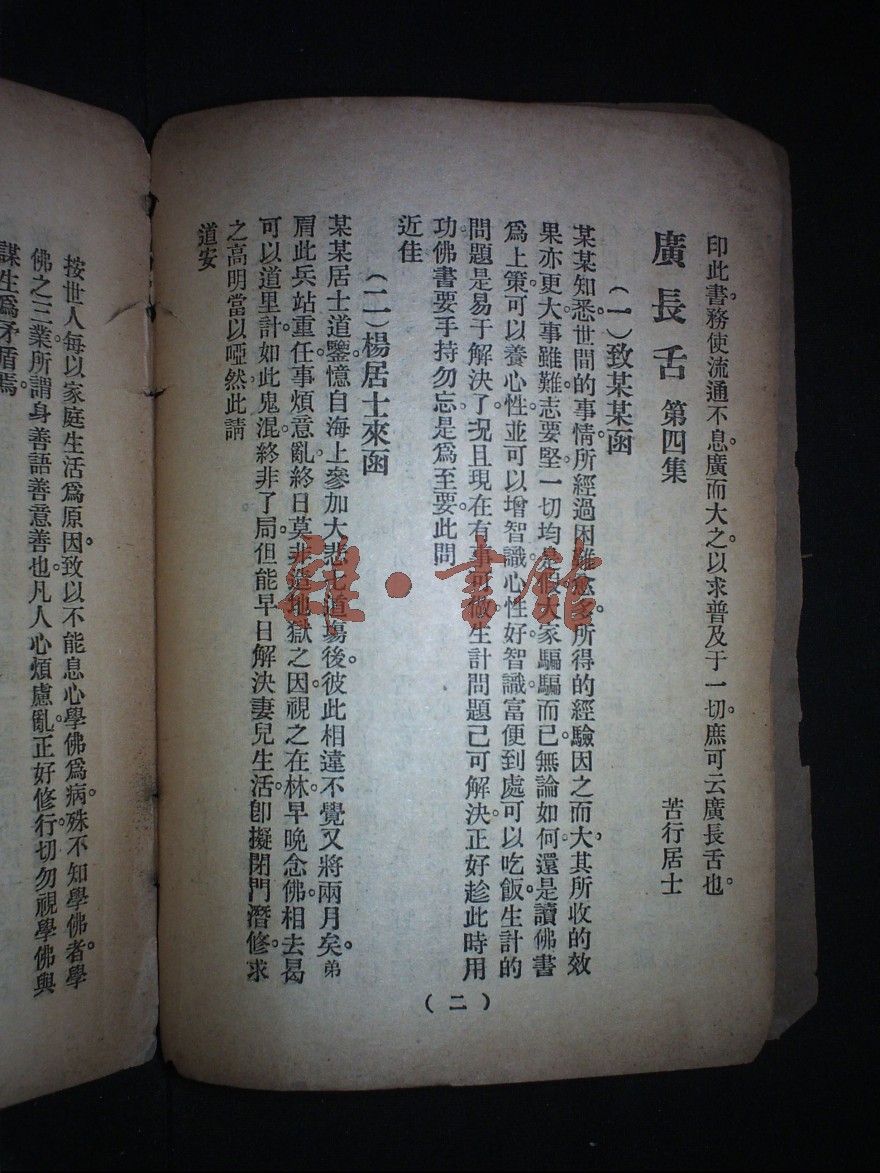 印此書務使流通不息。廣而大之以求普及于一切。庶可云廣長舌也。
廣長舌 第四集 苦行居士
（一）致某某函
某某知悉。世間的事情。所經過困難愈多。所得的經驗因之而大。其所收的效
果亦更大。事雖難。志要堅。一切均是假。大家騙騙而已。無論如何。還是讀佛書
為上策。可以養心性。並可以增智識。心性好。智識富。便到處可以吃飯。生計的
問題是易于解決了。況且現在有事可做。生計問題已可解決。正好趁此時用
功。佛書要手持勿忘。是為至要。此問
近佳
（二）楊居士來函
某某居士道鑒。憶自海上參加大悲七道場後。彼此相違。不覺又將兩月矣。弟
肩此兵站重任。事煩意亂。終日莫非造地獄之因。視之在林早晚念佛。相去曷
可以道里計。如此鬼混。終非了局。但能早日解決妻兒生活。卽擬閉門潛修。求
之高明。當以啞然。此請
道安
（二）
按世人每以家庭生活為原因。致以不能息心學佛為病。殊不知學佛者。學
佛之三業。所謂身善語善意善也。凡人心煩慮亂。正好修行。切勿視學佛與
謀生為矛盾焉。